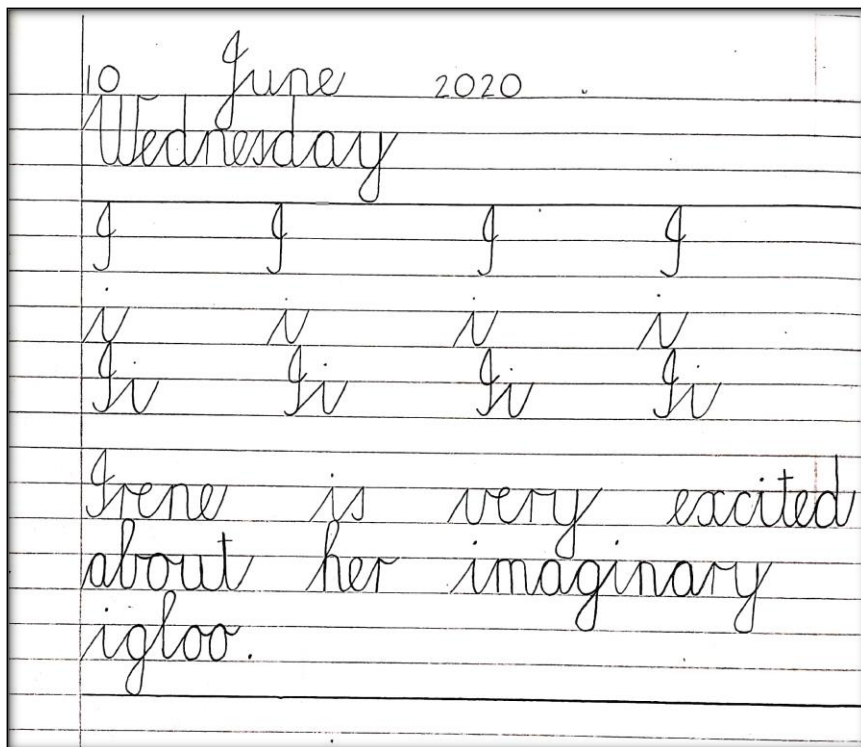 10 June 2020
Wednesday
I I I I
i i i i
Ii Ii Ii Ii
Irene is very excited
about her imaginary
igloo.